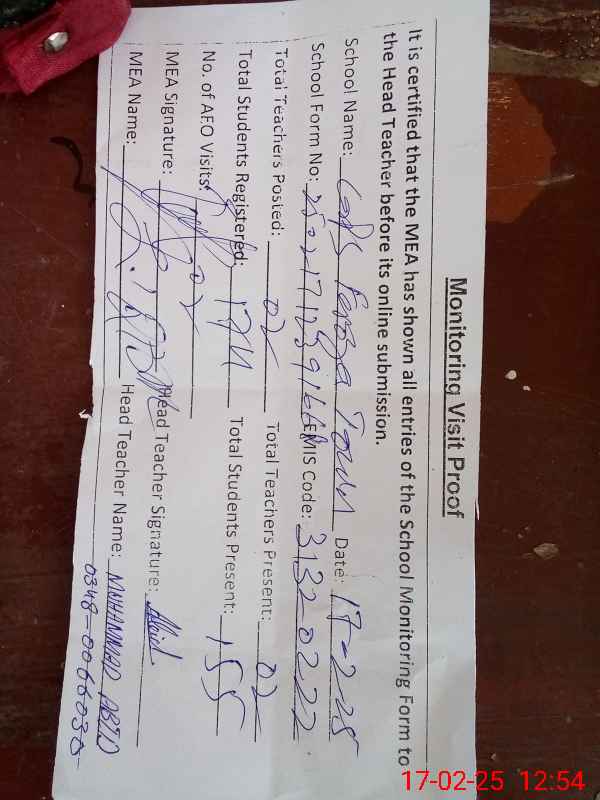 Monitoring Visit Proof
It is certified that the MEA has shown all entries of the School Monitoring Form to
the Head Teacher before its online submission.
School Name: GGPS Feroza Town Date: 17-2-25
School Form No: EMIS Code: 31320222
Total Teachers Posted: 02 Total Teachers Present: 02
Total Students Registered: 174 Total Students Present: 155
No. of AEO Visits: 02
MEA Signature: Head Teacher Signature: Abid
MEA Name: Head Teacher Name: MUHAMMAD ABID
0348-0066030
17-02-25 12:54